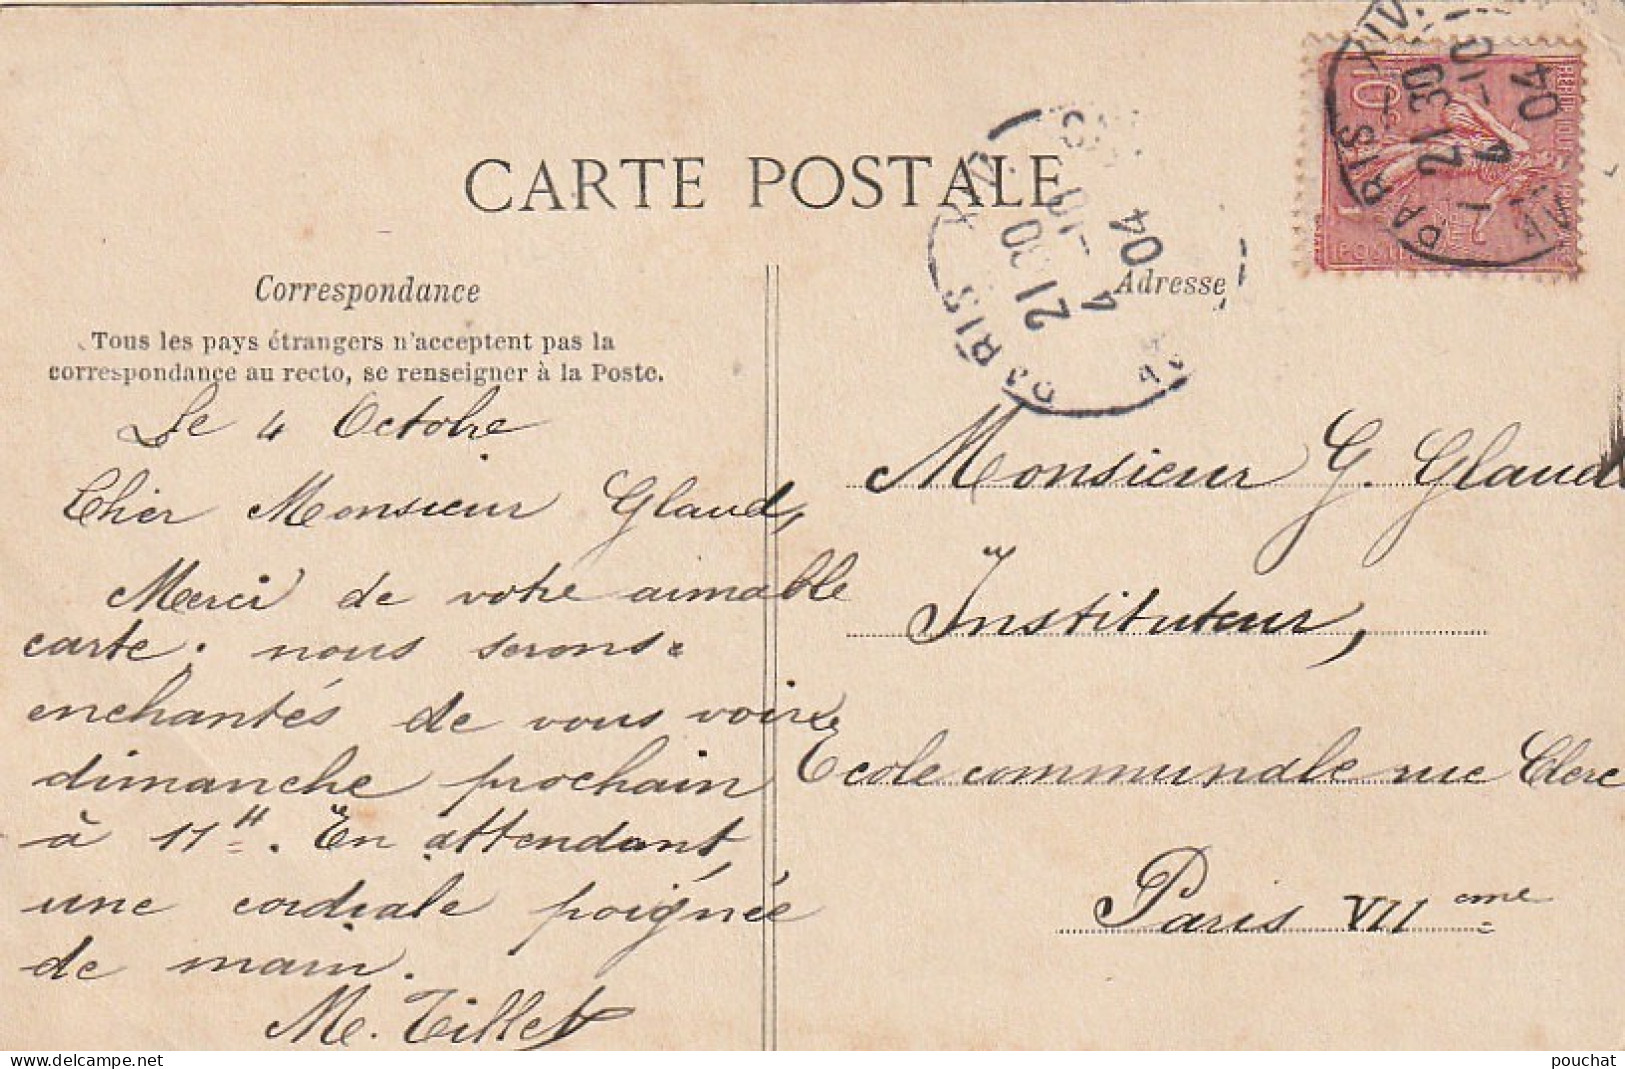 CARTE POSTALE
PARIS XIV.
21 30
4 -10
04
PARIS XIV.
21 30
4 -10
04
10
POSTES
Correspondance
Tous les pays étrangers n'acceptent pas la
correspondance au recto, se renseigner à la Poste.
Le 4 Octobre
Cher Monsieur Glaud,
Merci de votre aimable
carte; nous serons
enchantés de vous voir
dimanche prochain
à 11H. En attendant,
une cordiale poignée
de main.
M. Tillet
Adresse
Monsieur G. Glaud
Instituteur,
Ecole communale rue Clerc
Paris VIIème
delcampe.net
pouchat